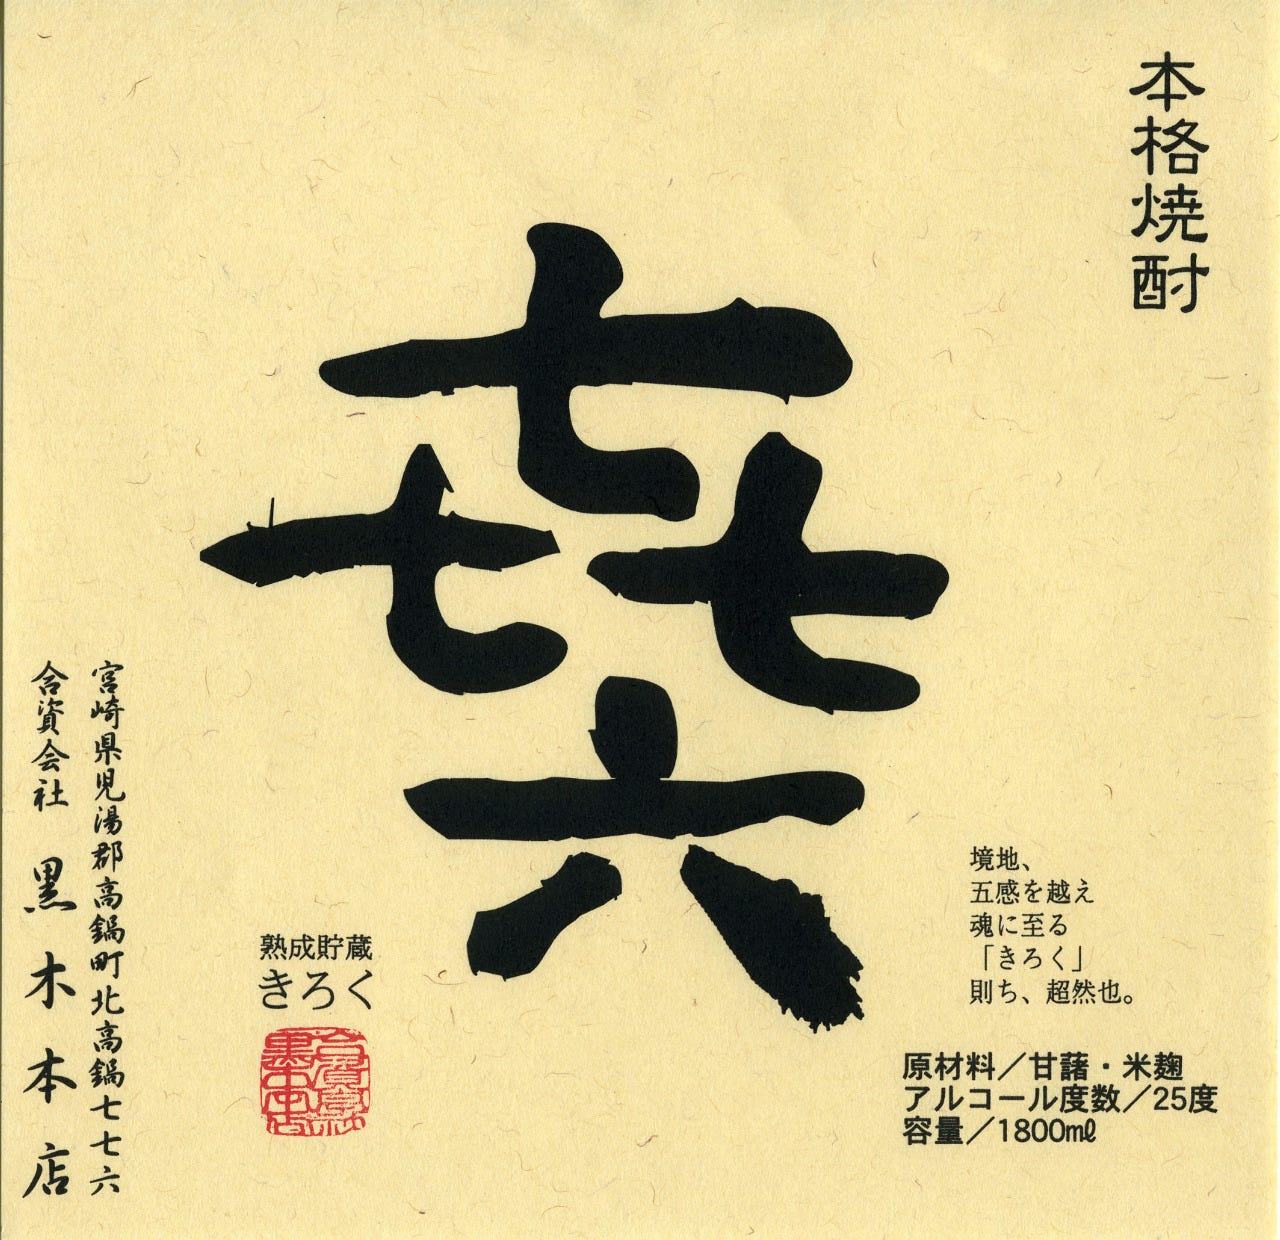 本格焼酎
㐂六
境地、
五感を越え
魂に至る
「きろく」
則ち、超然也。
原材料／甘藷・米麹
アルコール度数／25度
容量／1800㎖
熟成貯蔵
きろく
宮崎県児湯郡高鍋町北高鍋七七六
合資会社 黒木本店